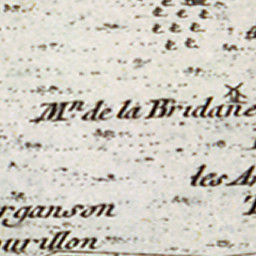 Mⁿ de la Bridane
les A
rganson
ourillon